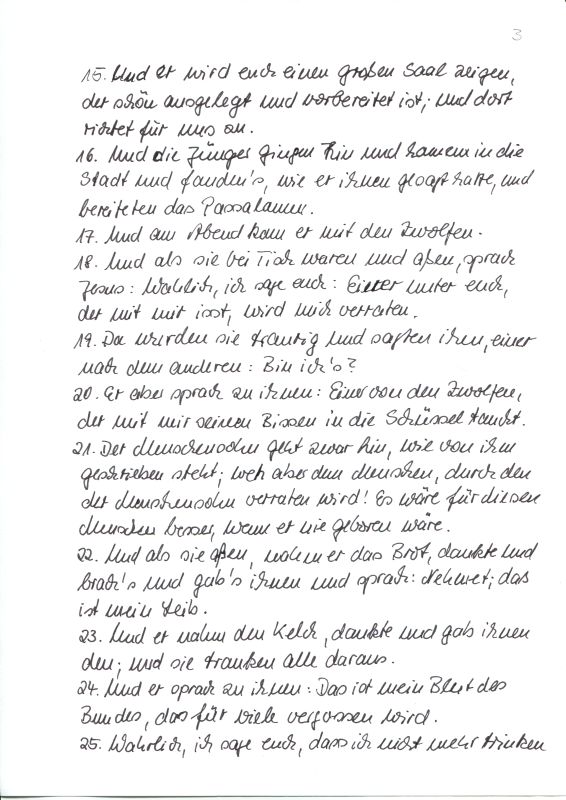 3
15. Und er wird euch einen großen Saal zeigen,
der schön ausgelegt und vorbereitet ist; und dort
richtet für uns an.
16. Und die Jünger gingen hin und kamen in die
Stadt und fanden's, wie er ihnen gesagt hatte, und
bereiteten das Passalamm.
17. Und am Abend kam er mit den Zwölfen.
18. Und als sie bei Tisch waren und aßen, sprach
Jesus: Wahrlich, ich sage euch: Einer unter euch,
der mit mir isst, wird mich verraten.
19. Da wurden sie traurig und sagten ihm, einer
nach dem anderen: Bin ich's?
20. Er aber sprach zu ihnen: Einer von den Zwölfen,
der mit mir seinen Bissen in die Schüssel taucht.
21. Der Menschensohn geht zwar hin, wie von ihm
geschrieben steht; weh aber dem Menschen, durch den
der Menschensohn verraten wird! Es wäre für diesen
Menschen besser, wenn er nie geboren wäre.
22. Und als sie aßen, nahm er das Brot, dankte und
brach's und gab's ihnen und sprach: Nehmet; das
ist mein Leib.
23. Und er nahm den Kelch, dankte und gab ihnen
den; und sie tranken alle daraus.
24. Und er sprach zu ihnen: Das ist mein Blut des
Bundes, das für viele vergossen wird.
25. Wahrlich, ich sage euch, dass ich nicht mehr trinken